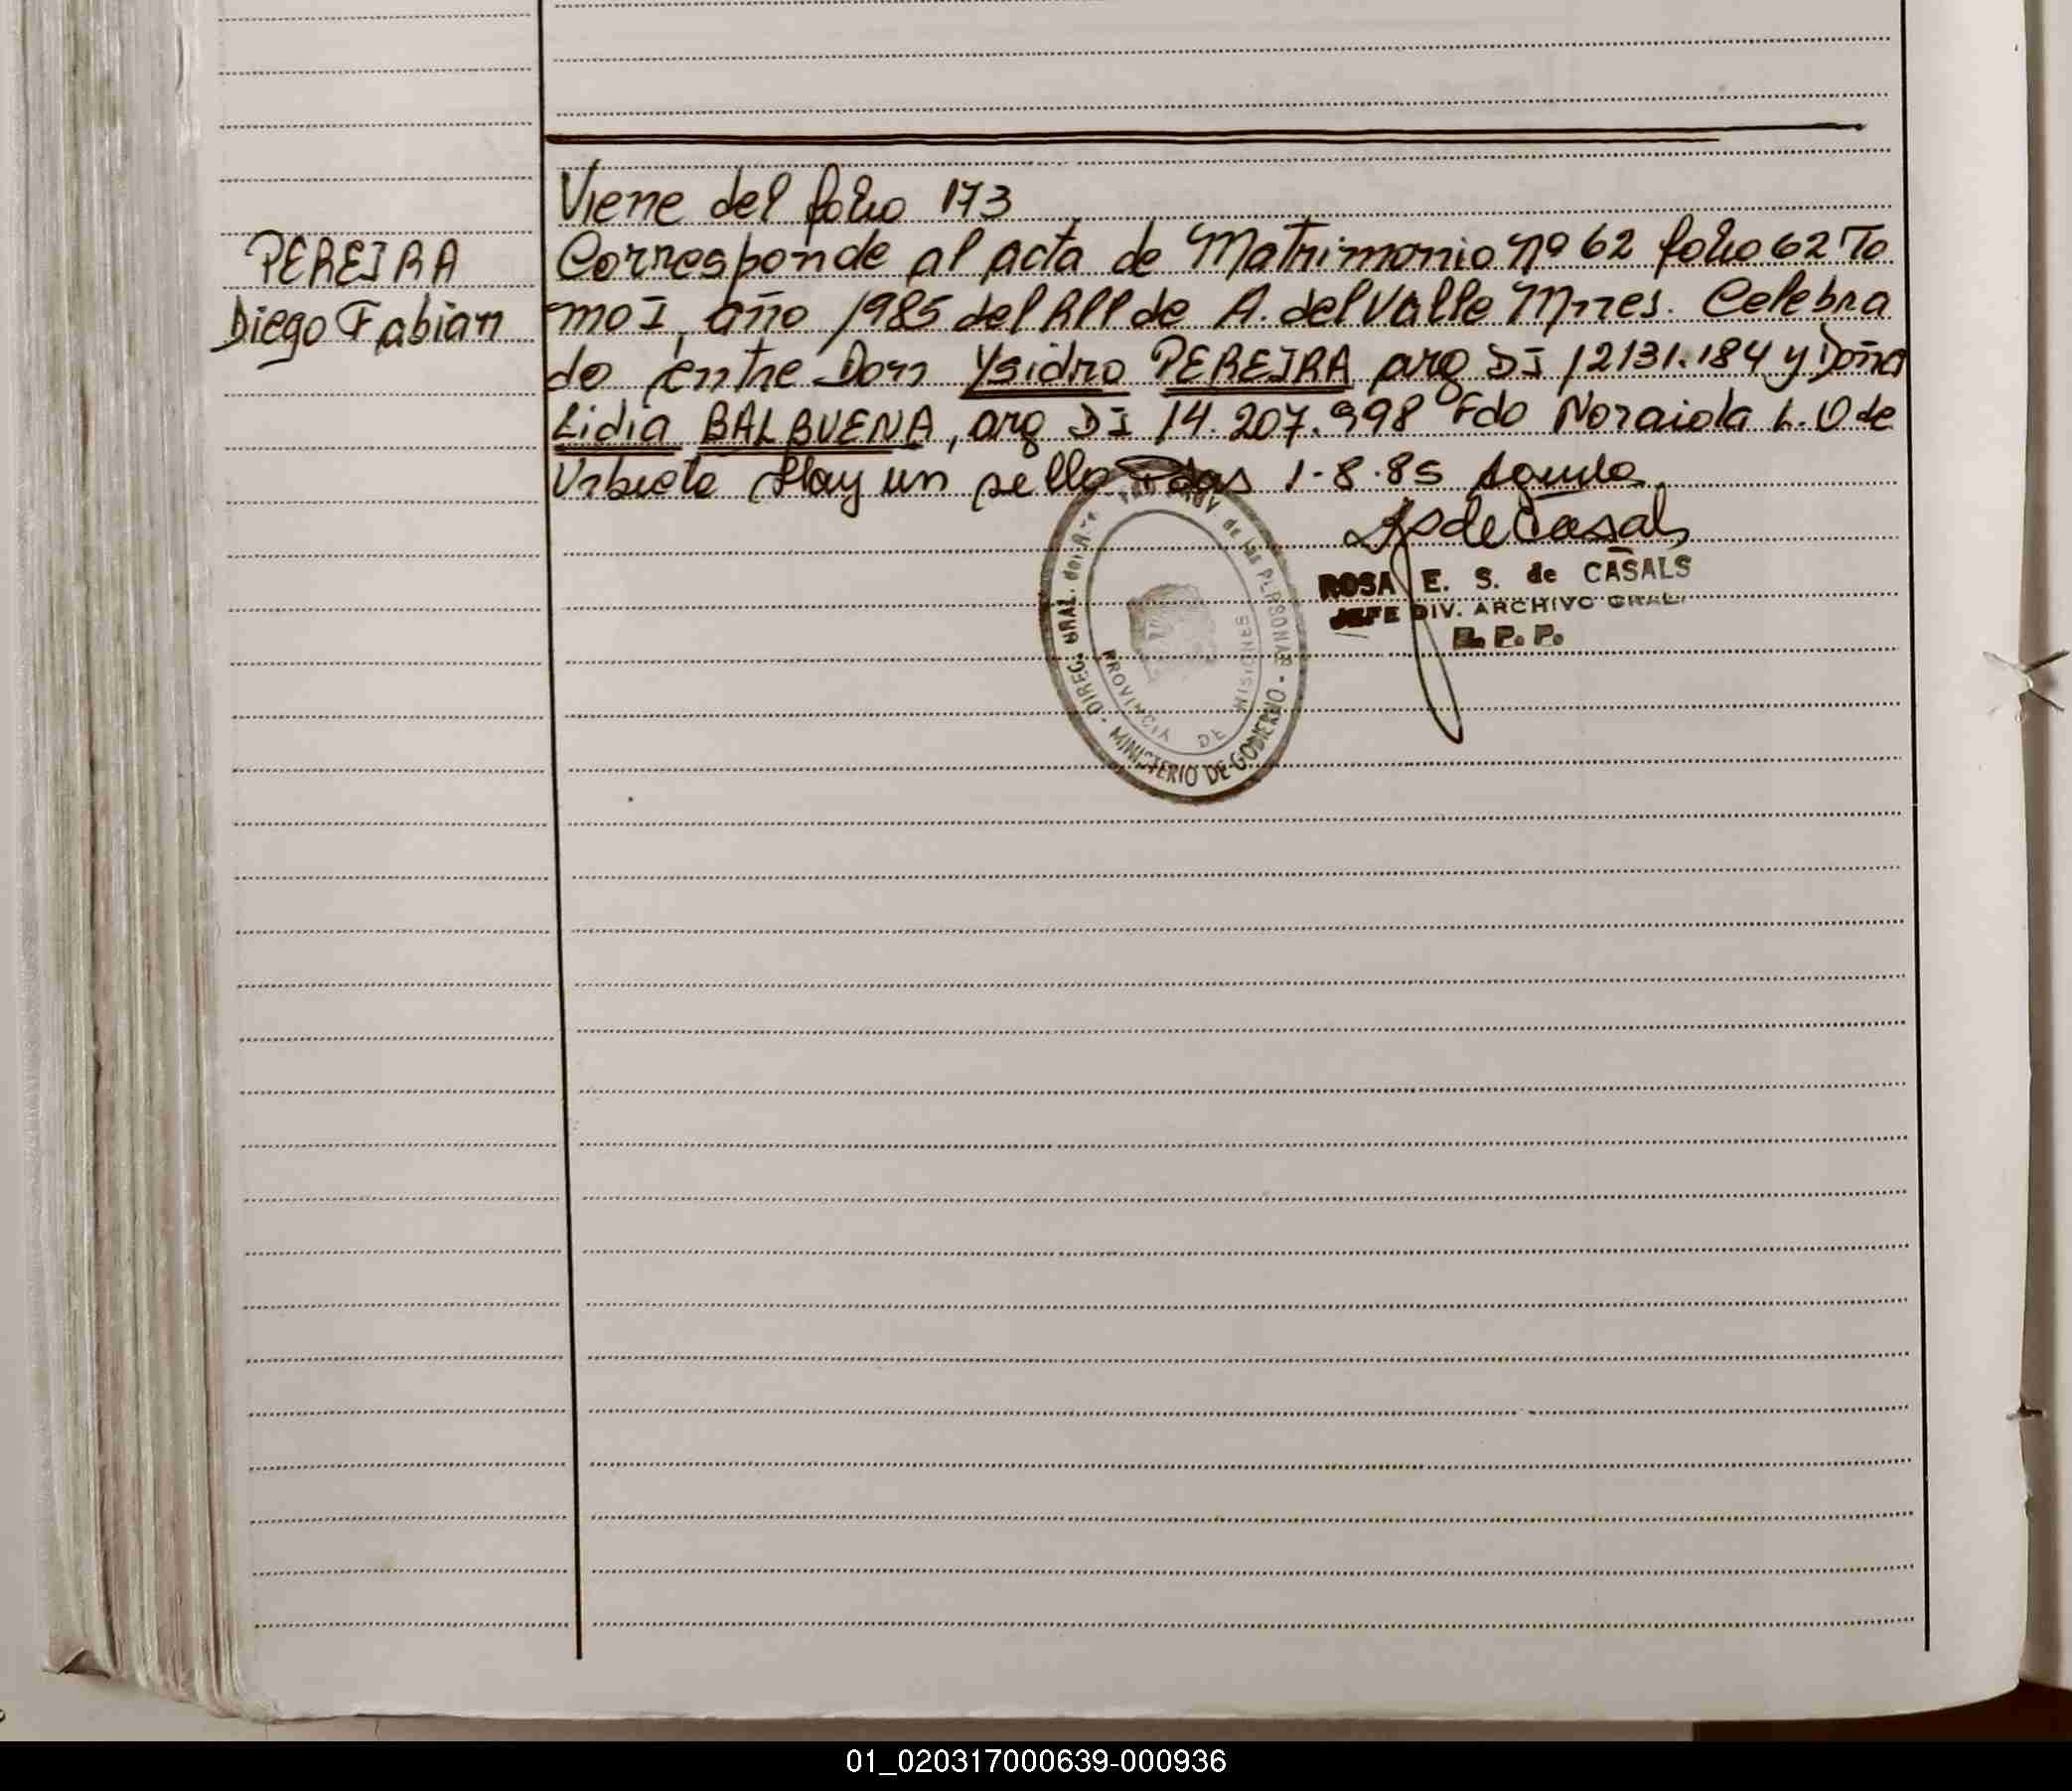 Viene del folio 173
PEREIRA
Diego Fabian
Corresponde al acta de Matrimonio nº 62 folio 62 To
mo I, año 1985 del RPP de A. del Valle Mnes. Celebra
do entre Don Ysidro PEREIRA arg DI 12131.184 y Doña
Lidia BALBUENA, arg DI 14.207.998 Fdo L. O de
Hay un sello Pdas 1-8-85
de Casals
ROSA E. S. de CASALS
JEFE DIV. ARCHIVO GRAL.
R. P. P.
DIREC. GRAL. del de las PERSONAS - MINISTERIO DE GOBIERNO -
PROVINCIA DE MISIONES
01_020317000639-000936